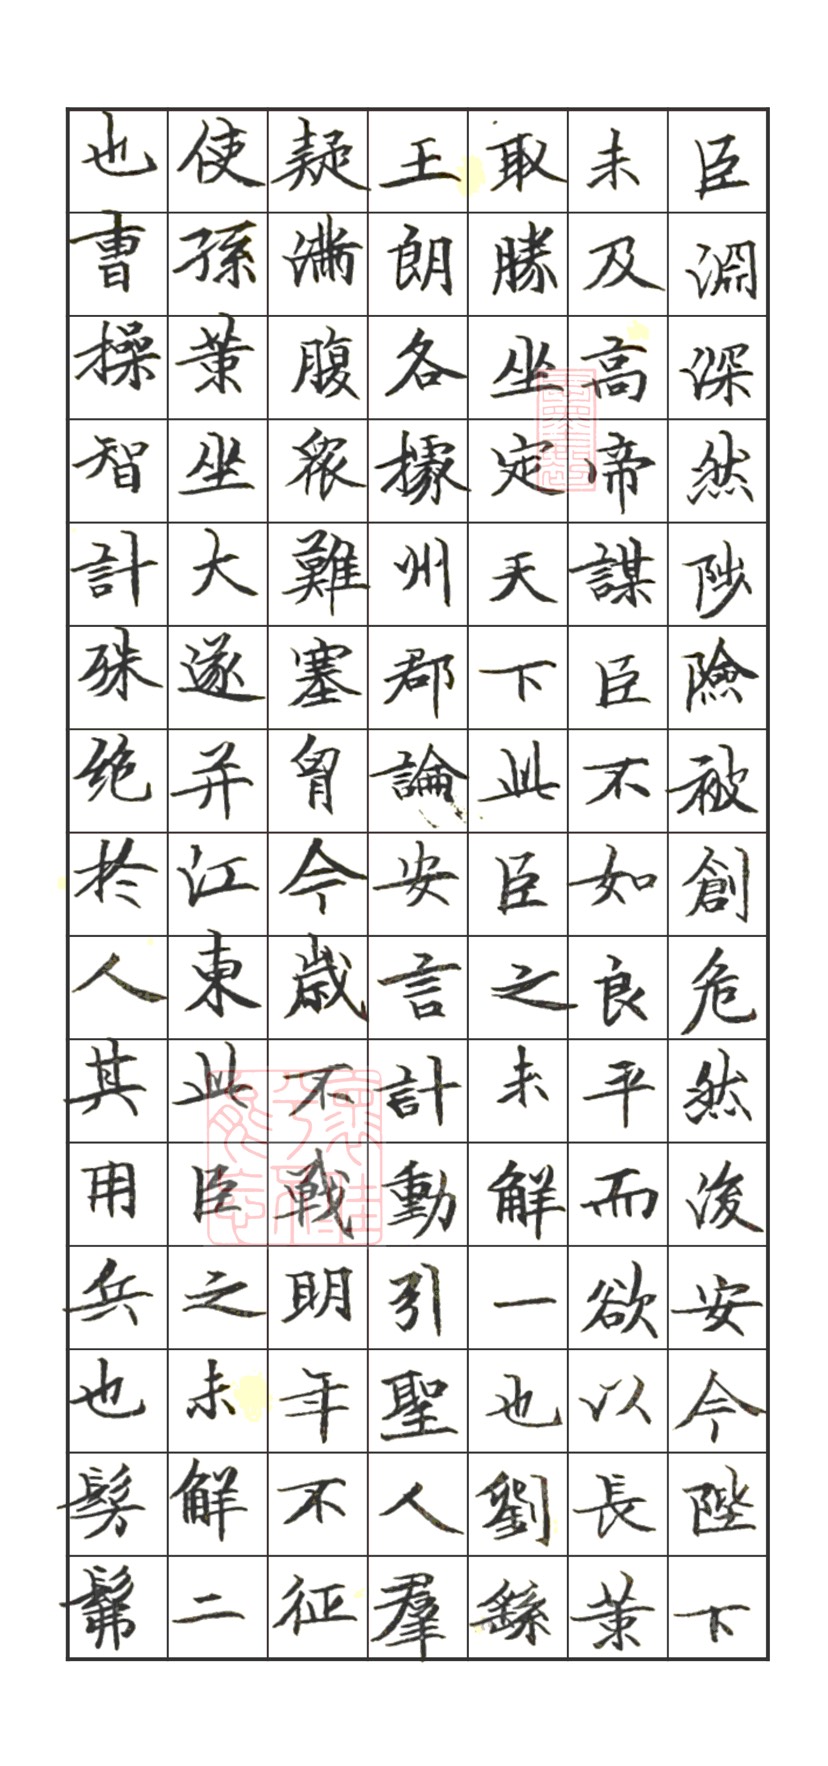 臣淵深然陟險被創危然後安今陛下
未及高帝謀臣不如良平而欲以長策
取勝坐定天下此臣之未解一也劉繇
王朗各據州郡論安言計動引聖人群
疑滿腹眾難塞胷今歲不戰明年不征
使孫策坐大遂并江東此臣之未解二
也曹操智計殊絕於人其用兵也髣髴